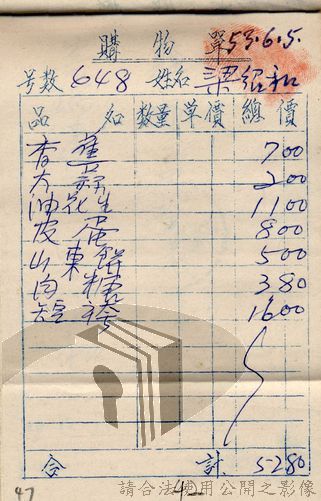 購物單 53.6.5.
号数 648 姓名 梁紹和
品名 数量 单價 總價
香蕉 700
大蒜 200
油花生 1100
皮蛋 800
山東餅 500
白糖 380
短褲 1600
合計 5280
47 42
請合法使用公開之影像